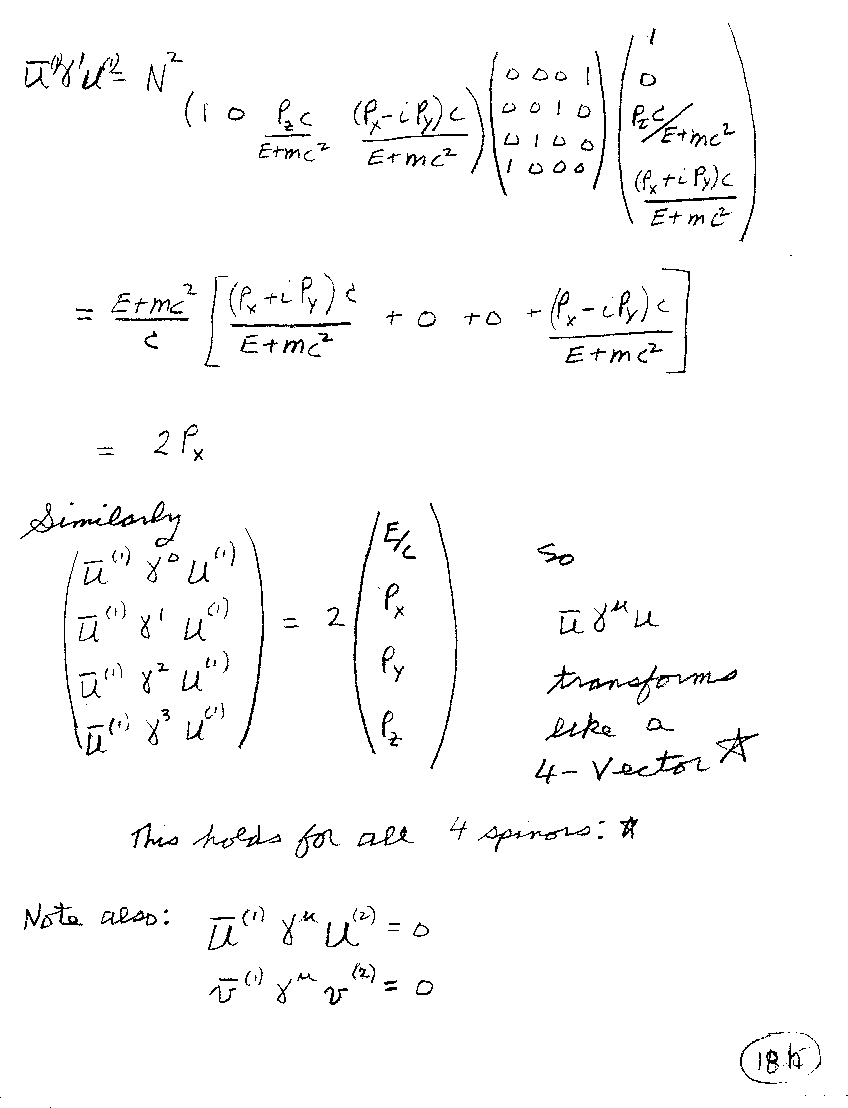 ū⁽¹⁾γ¹u⁽¹⁾ = N² (1 0 P_z c/E+mc² (P_x-iP_y)c/E+mc²) (0 0 0 1 / 0 0 1 0 / 0 1 0 0 / 1 0 0 0) (1 / 0 / P_z c/E+mc² / (P_x+iP_y)c/E+mc²)
= E+mc²/c [(P_x+iP_y)c/E+mc² + 0 + 0 + (P_x-iP_y)c/E+mc²]
= 2P_x
Similarly
(ū⁽¹⁾ γ⁰ u⁽¹⁾ / ū⁽¹⁾ γ¹ u⁽¹⁾ / ū⁽¹⁾ γ² u⁽¹⁾ / ū⁽¹⁾ γ³ u⁽¹⁾) = 2 (E/c / P_x / P_y / P_z)
so
ū γ^μ u
transforms
like a
4-Vector ☆
This holds for all 4 spinors: ☆
Note also: ū⁽¹⁾ γ^μ u⁽²⁾ = 0
v̄⁽¹⁾ γ^μ v⁽²⁾ = 0